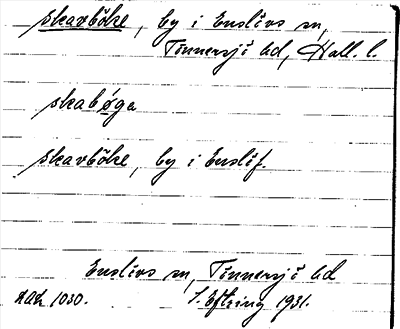 Skavböke, by i Enslövs sn,
Tönnersjö hd, Hall. l.
skabøga
Skavböke, by i Enslöf.
Enslövs sn, Tönnersjö hd
AAL 1030. S. Eftring 1931.